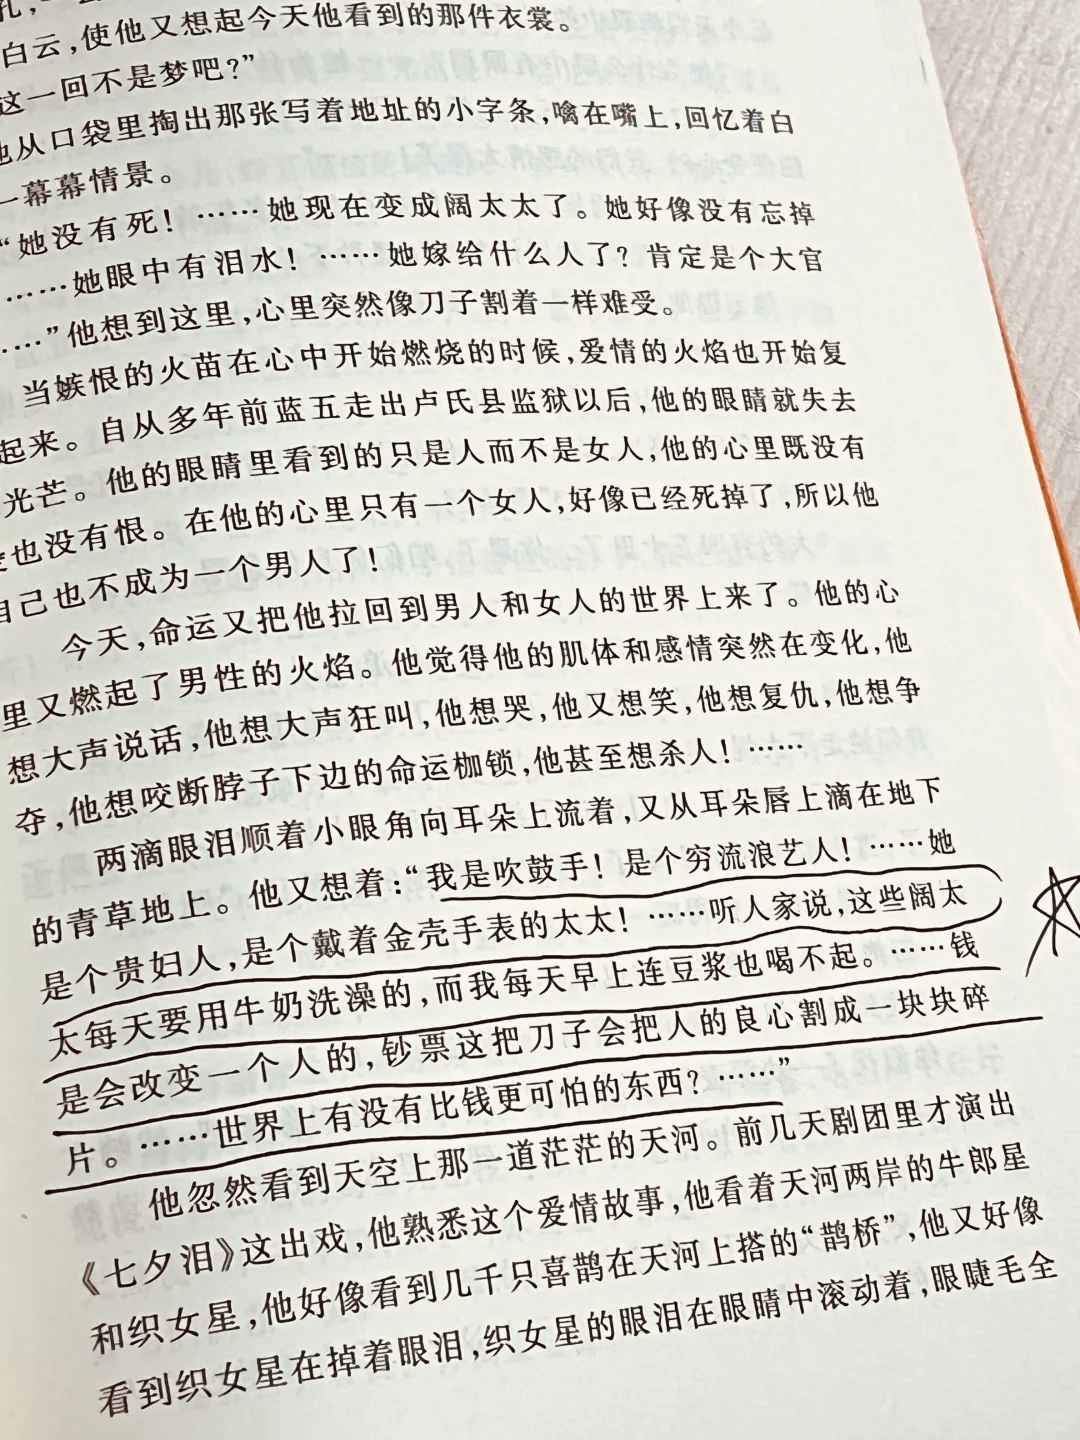 白云，使他又想起今天他看到的那件衣裳。
这一回不是梦吧？”
他从口袋里掏出那张写着地址的小字条，噙在嘴上，回忆着白
一幕幕情景。
“她没有死！……她现在变成阔太太了。她好像没有忘掉
……她眼中有泪水！……她嫁给什么人了？肯定是个大官
……”他想到这里，心里突然像刀子割着一样难受。
当嫉恨的火苗在心中开始燃烧的时候，爱情的火焰也开始复
起来。自从多年前蓝五走出卢氏县监狱以后，他的眼睛就失去
光芒。他的眼睛里看到的只是人而不是女人，他的心里既没有
也没有恨。在他的心里只有一个女人，好像已经死掉了，所以他
自己也不成为一个男人了！
今天，命运又把他拉回到男人和女人的世界上来了。他的心
里又燃起了男性的火焰。他觉得他的肌体和感情突然在变化，他
想大声说话，他想大声狂叫，他想哭，他又想笑，他想复仇，他想争
夺，他想咬断脖子下边的命运枷锁，他甚至想杀人！……
两滴眼泪顺着小眼角向耳朵上流着，又从耳朵唇上滴在地下
的青草地上。他又想着：“我是吹鼓手！是个穷流浪艺人！……她
是个贵妇人，是个戴着金壳手表的太太！……听人家说，这些阔太
太每天要用牛奶洗澡的，而我每天早上连豆浆也喝不起。……钱
是会改变一个人的，钞票这把刀子会把人的良心割成一块块碎
片。……世界上有没有比钱更可怕的东西？……”
他忽然看到天空上那一道茫茫的天河。前几天剧团里才演出
《七夕泪》这出戏，他熟悉这个爱情故事，他看着天河两岸的牛郎星
和织女星，他好像看到几千只喜鹊在天河上搭的“鹊桥”，他又好像
看到织女星在掉着眼泪，织女星的眼泪在眼睛中滚动着，眼睫毛全